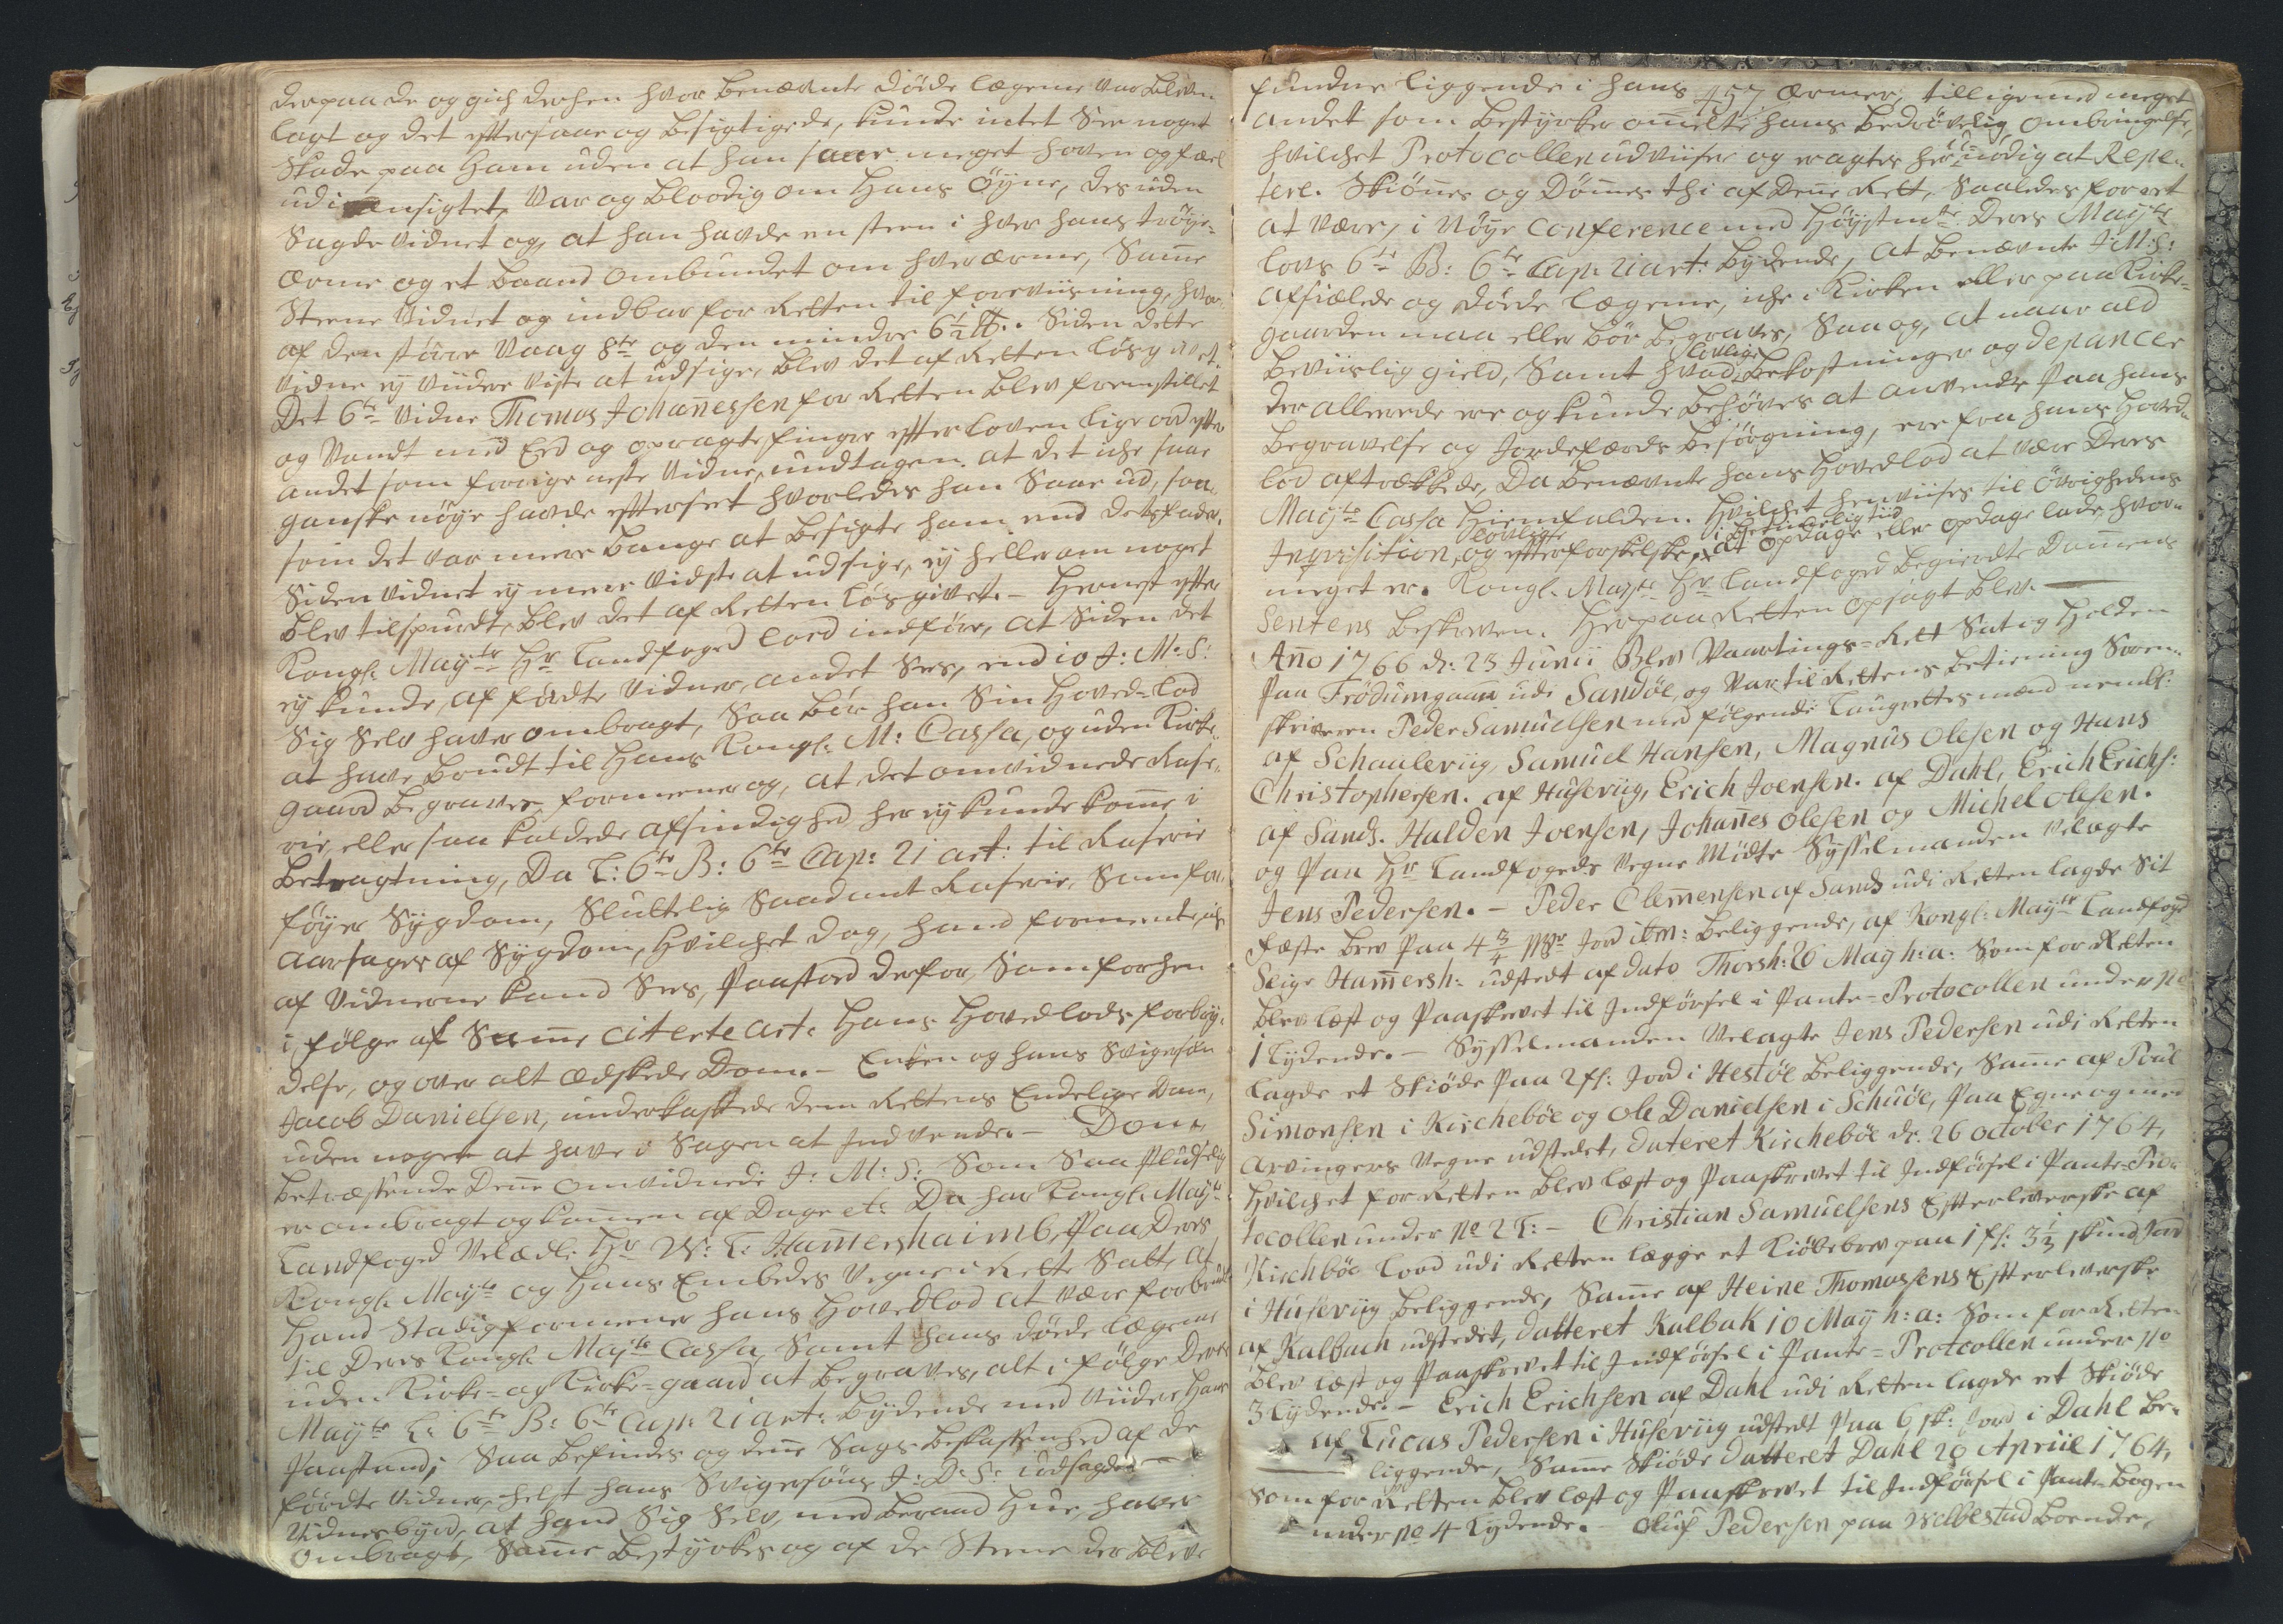 derpaa de og gich derhen hvor benævnte döede legeme var bleven
lagt og det eftersaae og besigtigede, kunde intet See noget
Skade paa ham uden at han saae meget hoven og fæel
ud i Ansigtet, var og bloodig om hans Öyne, des uden
Sagde vidnet og, at han havde en steen i hver hans tröye-
ærme og et baand ombundet om hver ærme, Samme
Steene Vidnet og indbar for Retten til foreviisning, hvor-
af den större Vaag 8te og den mindre 6½ ℔. Siden dette
vidne ey viidere viste at udsige, blev det af Retten lösgivet.
Det 6te vidne Thomas Johannessen for Retten blev fremstillet
og Vandt med Eed og opragte finger efter loven lige ord efter
andet som forrige neste Vidne, undtagen at det iche saae
ganske nöye havde efterseet hvorledes han Saae ud, saa-
som det var mere bange at besigte ham end dets fader.
Siden vidnet ey mere vidste at udsige, ey heller om noget
blev tilspurdt, blev det af Retten lösgivet. - Hernest efter
Kongl. Mayts Hr Landfoged lood indföre, at Siden det
ey kunde af förte vidner, andet Sees, end io J: M: S:
Sig Selv haver ombragt, Saa bör han Sin Hoved-lod
at have brudt til Hans Kongl: M: Cassa, og uden Kirke-
gaard begraves, formener og, at det omvidnede Rase-
rie eller saa kaldede afsindighed her ey kunde komme i
betragtning, Da L: 6te B: 6te Cap: 21 art: til Raserie
föyer Sygdom, Sluttelig Saadant Raserie, Som for-
aarsages af Sygdom, hvilchet dog, hand formente, iche
af vidnerne kand Sees, Paastod derfor Som forhen
i fölge af Samme citerte art: Hans Hovedlods forbry-
delse, og over alt ædskede Dom. - Enken og hans Svigersön
Jacob Danielsen, underkastede dem Rettens Endelige Dom,
uden noget at have i Sagen at Indvende. - Dom
betreffende Denne omvidnede J: M: S: Som Saa Pludselig
er ombragt og kommen af Dage etc Da har Kongl. Mayts
Landfoged Velædl: Hr W: L: Hammershaimb, Paa Deres
Kongl. Mayts og Hans Embedes Vegne i Rette Satt, at
Hand Stadig formener hans Hovedlod at være forbrudt
til Deres Kongl: Mayts Cassa, Samt hans döede legeme
uden Kirke- og Kirke-gaard at begraves, alt i fölge Deres
Mayts L: 6te B: 6te Cap: 21 art: bydende med viidere Hans
Paastand; Saa befindes og denne Sags beskaffenhed af de
förte Vidner, helst hans Svigersöns J: D: S: udsagde
Vidnesbyrd, at hand Sig Selv, med beraad Hue, haver
ombragt, Samme bestyrkes og af de Steene der bleve
457
fundne liggende i hans ærmer, tilligemed meget
andet som bestyrker ommelte hans bedrövelig ombringelse,
hvilchet Protocollen udviiser og eragtes her unödig at Repe-
tere. Skiönnes og Dömmes thi af Denne Rett, Saaledes for ret
at være, i Nöye Conference med Höystmte Deres Mayts
lovs 6te B: 6te Cap: 21 art: bydende, at benævnte J: M: S:
afsielede og döede legeme, iche i Kirken eller paa Kirke-
gaarden maa eller bör begraves, Saa og, at naar ald
beviislig gield, Samt hvad lovlige bekostninger og depancer
der allerede ere og kunde behöves at anvendes Paa hans
begravelse og Jordefærds besörgning, ere fra hans Hoved-
lod aftrækkede, Da benævnte hans Hovedlod at være Deres
Mayts Cassa hiemfalden. Hvilchet henviises til Övrighedens
Inqvisition, og lovlige efterforskelse, i beqvemmelig tiid at opdage eller opdage lade, hvor-
meget er. Kongl. Mayts Hr Landfoged begierede Dommens
Sentens beskreven. Herpaa Retten opsagt blev. -
Anno 1766 d: 23 Junii Blev Vaartings-Rett Sat og Holden
Paa Trödumgaan udi Sandöe, og Var til Rettens betiening Soren-
skriveren Peder Samuelsen med fölgende Laugrettesmænd nemlig:
af Schaalevüg, Samuel Hansen, Magnus Olesen og Hans
Christophersen. af Husevüg, Erich Joensen. af Dahl, Erich Erichs:
af Sand. Halden Joensen, Johannes Olesen og Michel Olesen.
og Paa Hr Landfogeds Vegne Mödte Sysselmanden Velagte
Jens Pedersen. - Peder Clemmensen af Sand udi Retten lagde Sit
Fæste brev Paa 4¾ Mr Jord ibm: beliggende, af Kongl: Mayts Landfoged
Seigr Hammersh: udstedt af dato Thorsh: 26 May h: a: Som for Retten
blev læst og Paaskrevet til Indförsel i Pante-Protocollen under No
1 Lydende. - Sysselmanden Velagte Jens Pedersen udi Retten
lagde et Skiöde Paa 2 fl: Jord i Hestöe beliggende, Samme af Poul
Simonsen i Kircheböe og Ole Danielsen i Schuöe, Paa Egne og med
arvingers Vegne udstedet, dateret Kircheböe d: 26 october 1764,
hvilchet for Retten blev læst og Paaskrevet til Indförsel i Pante-Pro-
tocollen under No 2 L: - Christian Samuelsens Efterleverske af
Kirchböe lood udi Retten legge et Kiöbebrev paa 1 fl: 3⅓ skind Jord
i Husevüg beliggende, Samme af Heine Thomassens Efterleverske
af Kalbach udstedet, datteret Kalbak 10 May h: a: Som for Retten
blev læst og Paaskrevet til Indförsel i Pante-Protocollen under No
3 lydende. - Erich Erichsen af Dahl udi Retten lagde et Skiöde
af Lucas Pedersen i Husevüg udstedt paa 6 sk: Jord i Dahl be-
liggende, Samme Skiöde datteret Dahl 28 Apriil 1764,
Som for Retten blev læst og Paaskrevet til Indförsel i Pante-bogen
under No 4 Lydende. - Oluf Pedersen paa Welbestad boende,